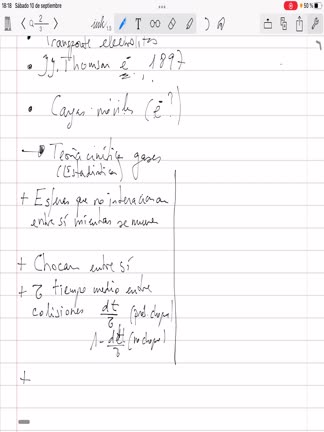 18:18 Sábado 10 de septiembre
50 %
2/3
• Transporte electrolitos
• JJ. Thomson e⁻ 1897
• Cargas móviles (e⁻?)
→ Teoría cinética gases
(Estadística)
+ Esferas que no interaccionan
entre sí mientras se mueven
+ Chocan entre sí
+ τ tiempo medio entre
colisiones dt/τ (prob. choque)
1 - dt/τ (no choque)
+